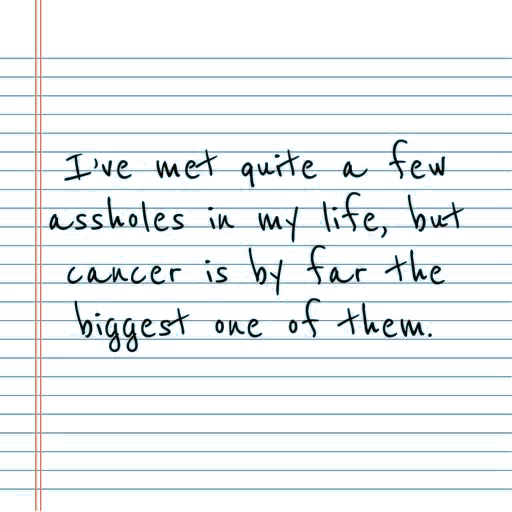 I've met quite a few
assholes in my life, but
cancer is by far the
biggest one of them.